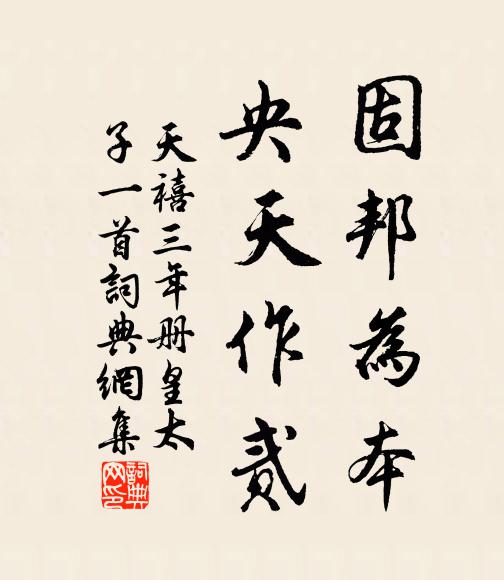 固邦為本
央天作貳
天禧三年册皇太
子一首詞典網集
詞典网印